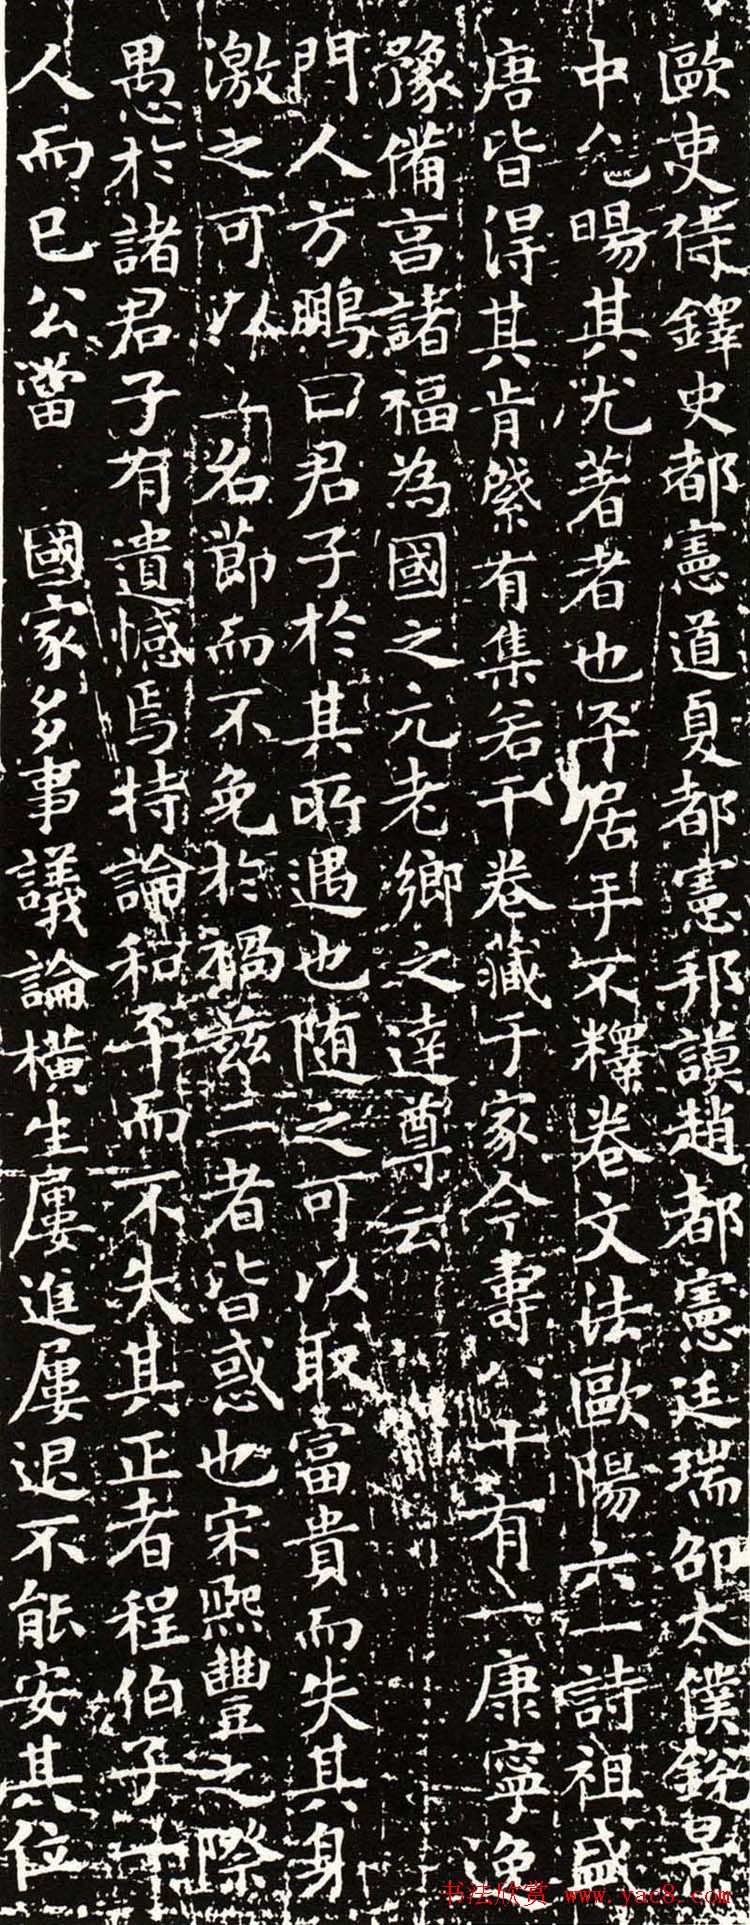 歐吏侍鐸史都憲道夏都憲邦謨趙都憲廷瑞邵太僕銳景
中允暘其尤著者也平居手不釋卷文法歐陽六一詩祖盛
唐皆得其肯綮有集若干卷藏于家今壽八十有一康寧逸
豫備享諸福為國之元老鄉之達尊云
門人方鵬曰君子於其所遇也随之可以取富貴而失其身
激之可以 名節而不免於禍茲二者皆惑也宋熙豐之際
愚於諸君子有遺憾焉特論和平而不失其正者程伯子一
人而已公當 國家多事議論橫生屢進屢退不能安其位
书法欣赏 www.yac8.com